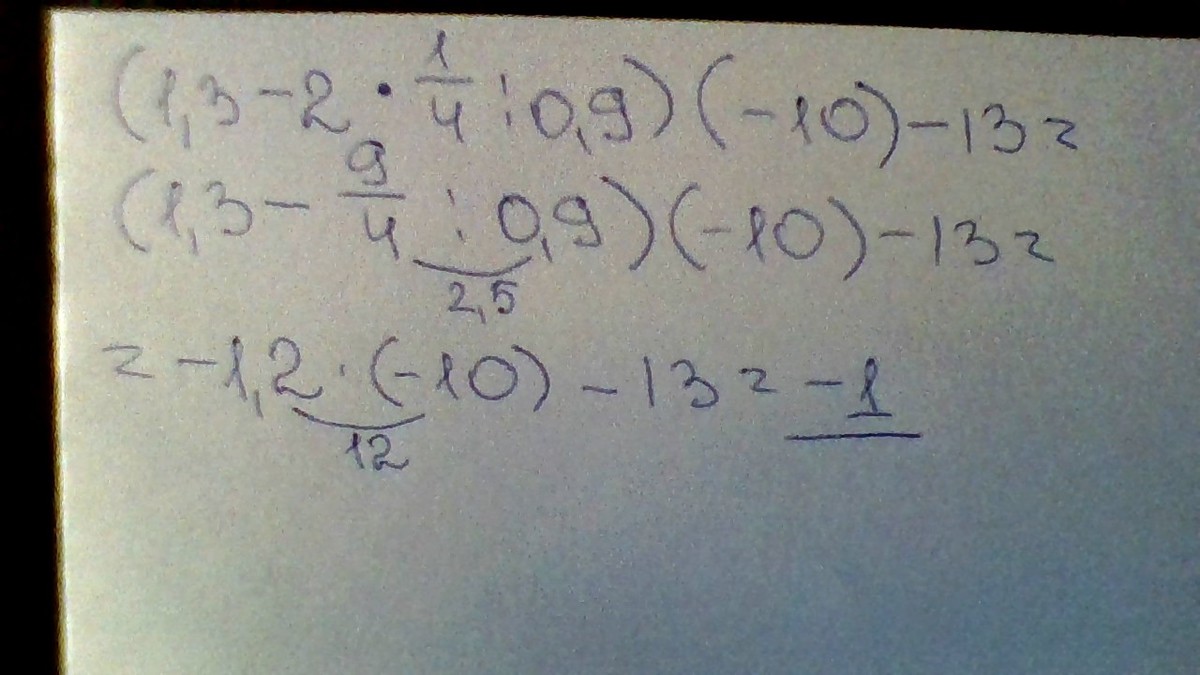 (1,3 - 2 · 1/4 : 0,9) (-10) - 13 =
(1,3 - 9/4 : 0,9) (-10) - 13 =
2,5
= -1,2 · (-10) - 13 = -1
12